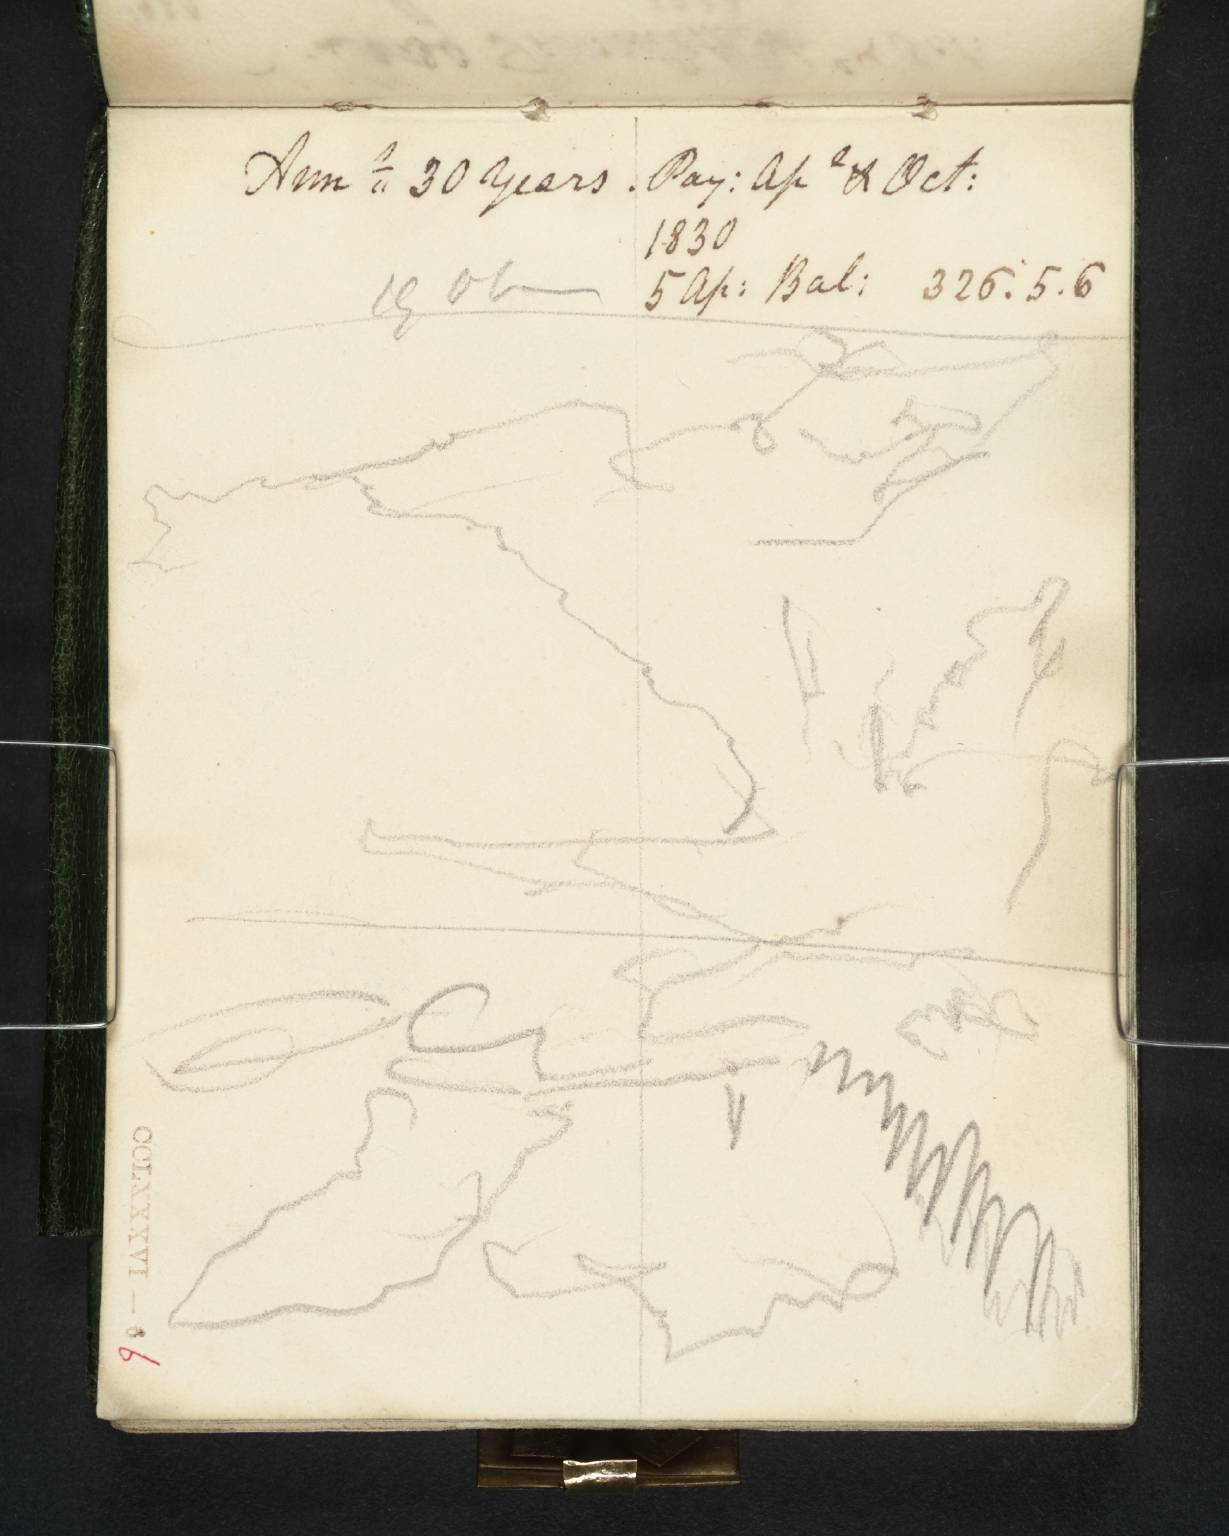 Ann 30 Years . Pay: Ap & Oct:
1830
5 Ap: Bal: 326.5.6
CCLXXXVI — 9
9